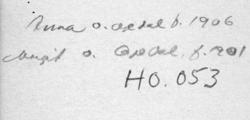 Anna O. Opdal f. 1906
Margit O. Opdal, f. 1901
HO.053